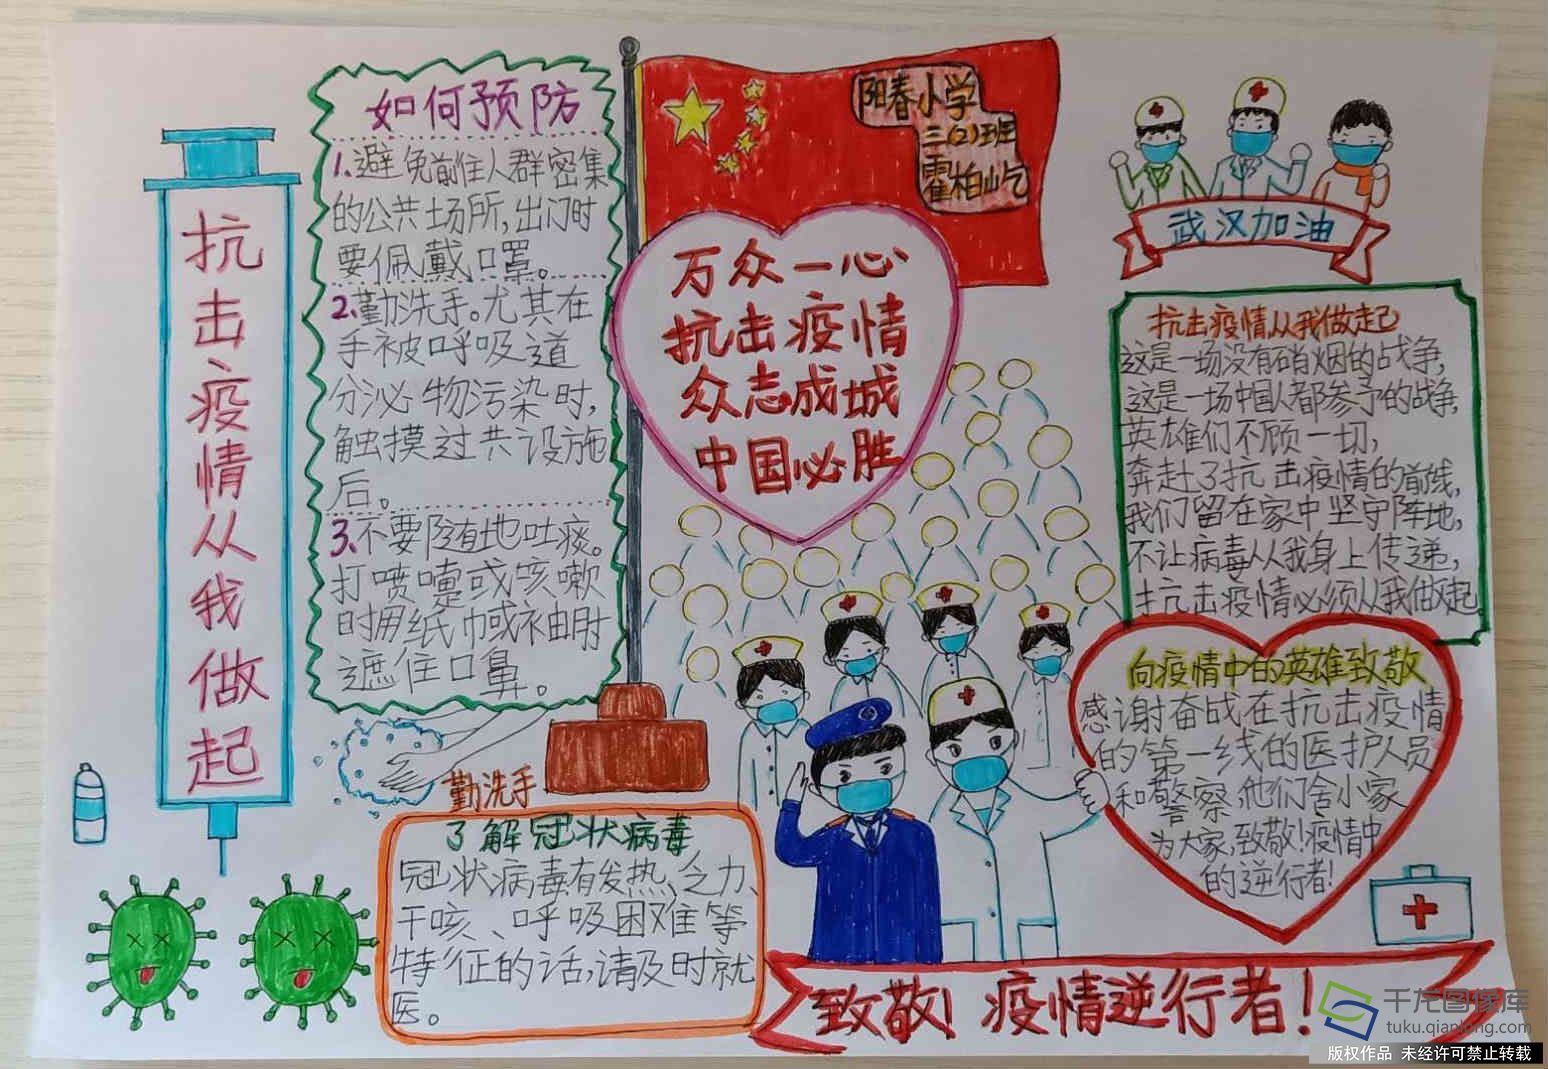 抗击疫情从我做起
如何预防
1.避免前往人群密集
的公共场所,出门时
要佩戴口罩。
2.勤洗手。尤其在
手被呼吸道
分泌物污染时,
触摸过共设施
后。
3.不要随地吐痰。
打喷嚏或咳嗽
时用纸巾或袖肘
遮住口鼻。
勤洗手
了解冠状病毒
冠状病毒有发热、乏力、
干咳、呼吸困难等
特征的话,请及时就
医。
阳春小学
三(2)班
霍柏屹
万众一心
抗击疫情
众志成城
中国必胜
武汉加油
抗击疫情从我做起
这是一场没有硝烟的战争,
这是一场中国人都参予的战争,
英雄们不顾一切,
奔赴了抗击疫情的前线,
我们留在家中坚守阵地,
不让病毒从我身上传递,
抗击疫情必须从我做起
向疫情中的英雄致敬
感谢奋战在抗击疫情
的第一线的医护人员
和警察,他们舍小家
为大家,致敬!疫情中
的逆行者!
致敬!疫情逆行者!
千龙图像库
tuku.qianlong.com
版权作品 未经许可禁止转载